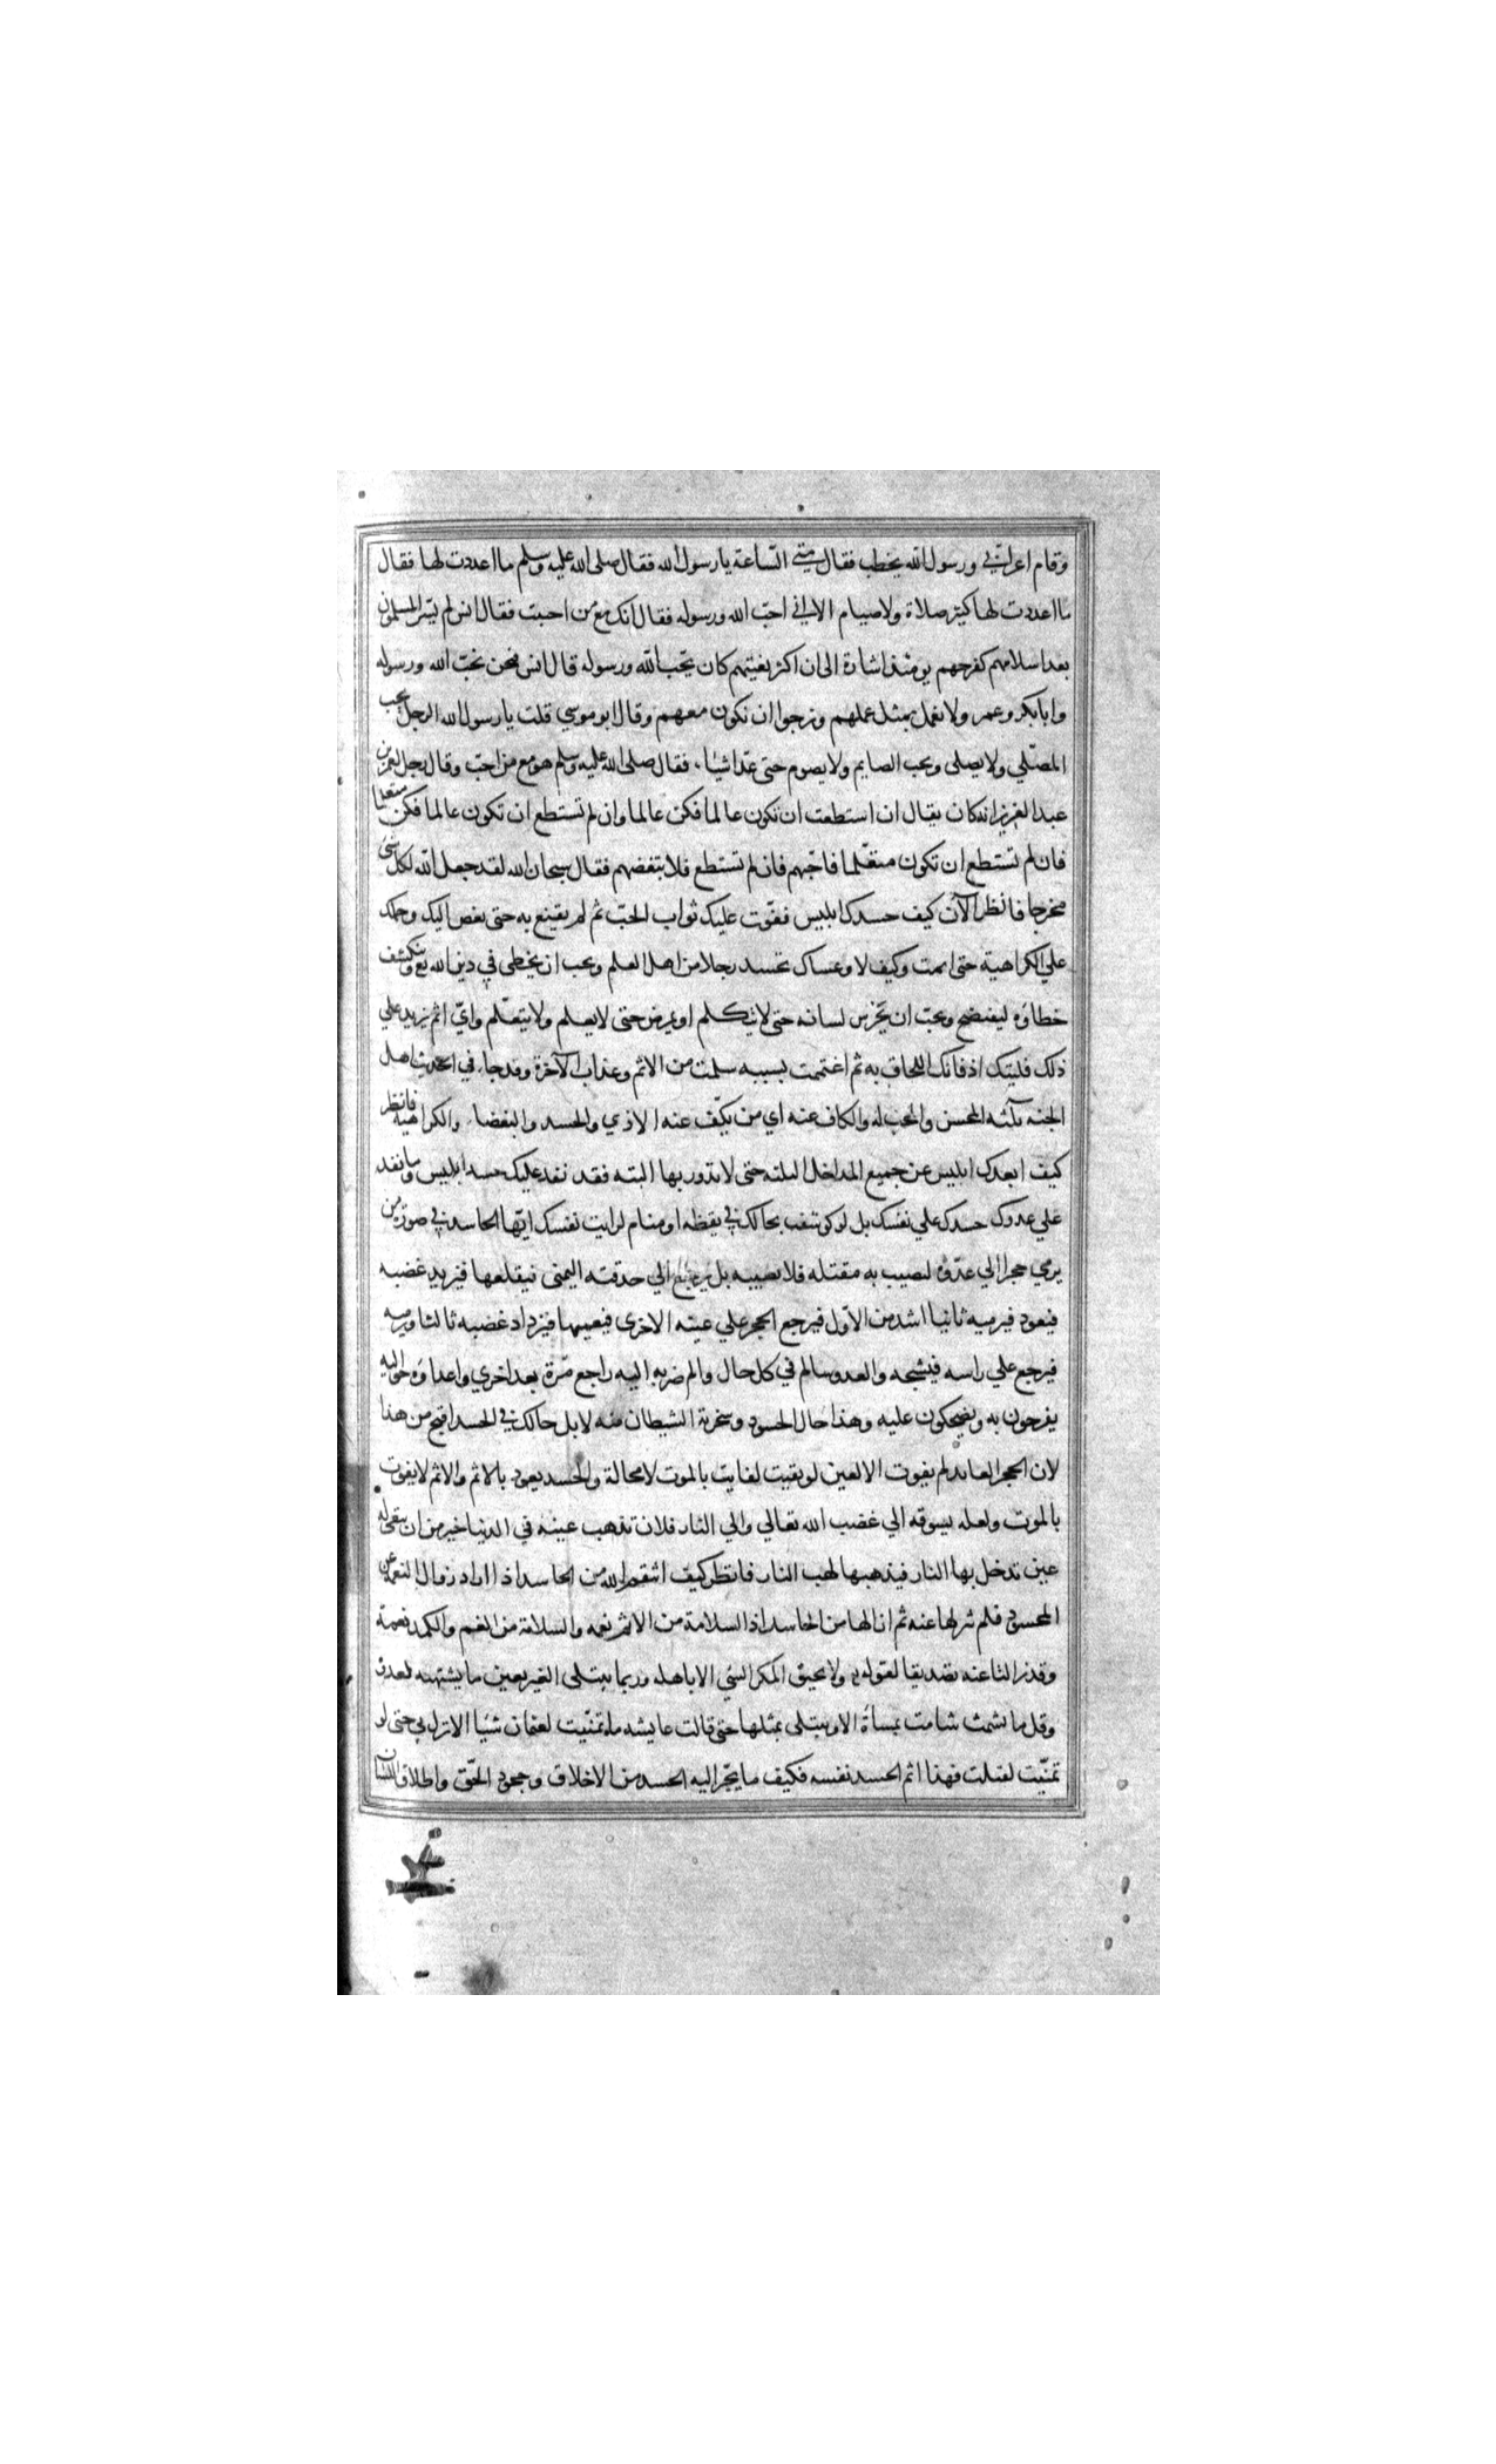 وقام اعرابي ورسول الله يخطب فقال متى الساعة يا رسول الله فقال صلى الله عليه وسلم ما اعددت لها فقال
ما اعددت لها كثير صلاة ولا صيام الا اني احبّ الله ورسوله فقال انك مع من احببت فقال انس لم يسّر المسلمون
بعد اسلامهم كفرحهم يومئذ اشارة الى ان اكثر بغيتهم كان بحب الله ورسوله قال انس فنحن نحبّ الله ورسوله
وابا بكر وعمر ولا نعمل بمثل عملهم ونرجوا ان نكون معهم وقال ابو موسي قلت يا رسول الله الرجل يحب
المصلّي ولا يصلى ويحب الصايم ولا يصوم حتى عدّ اشياء فقال صلى الله عليه وسلم هو مع من احبّ وقال رجل لعمر بن
عبد العزيز انه كان يقال ان استطعت ان تكون عالما فكن عالما وان لم تستطع ان تكون عالما فكن متعلما
فان لم تستطع ان تكون متعلّما فاحبّهم فان لم تستطع فلا تبغضهم فقال سبحان الله لقد جعل الله لكل شئ
مخرجا فانظر الآن كيف حسدك ابليس ففوّت عليك ثواب الحبّ ثم لم يقنع به حتى بغض اليك وحملك
علي الكراهية حتى اثمت وكيف لا وعساك تحسد رجلا من اهل العلم وتحب ان يخطى في دين الله تع وينكشف
خطاؤه ليفتضح وتحبّ ان يخرس لسانه حتى لا يتكلم او يمرض حتى لا يعلم ولا يتعلّم وايّ اثم يزيد علي
ذلك فليتك اذ فاتك اللحاق به ثم اغتممت بسببه سلمت من الاثم وعذاب الآخرة وقد جاء في الحديث اهل
الجنه ثلثه المحسن والمحب له والكاف عنه اي من يكّف عنه الاذي والحسد والبغضاء والكراهيه فانظر
كيف ابعدك ابليس عن جميع المداخل الثلثه حتى لا تدور بها البته فقد نفد عليك حسد ابليس وما نفد
علي عدوك حسدك علي نفسك بل لو كوشفت بحالك في يقظه او منام لرايت نفسك ايّها الحاسد في صورة من
يرمي حجرا الي عدّوه ليصيب به مقتله فلا يصيبه بل يرجع الي حدقته اليمنى فيقلعها فيزيد غضبه
فيعود فيرميه ثانيا اشد من الاوّل فيرجع الحجر علي عينه الاخرى فيعميها فيزداد غضبه ثالثا ويرميه
فيرجع علي راسه فيشجه والعدو سالم في كل حال والم ضربه اليه راجع مّرة بعد اخري واعداؤه حواليه
يفرحون به ويضحكون عليه وهذا حال الحسود وسخرية الشيطان منه لا بل حالك في الحسد اقبح من هذا
لان الحجر العايد لم يفوت الا العين لو بقيت لفاتت بالموت لا محالة والحسد يعود بالاثم والاثم لا يفوت
بالموت ولعله يسوقه الي غضب الله تعالي والي النار فلان تذهب عينه في الدنيا خير من ان يبقى له
عين تدخل بها النار فيذهبها لهب النار فانظر كيف انتقم الله من الحاسد اذا اراد زوال النعمه عن
المحسود فلم تزلها عنه ثم ازالها من الحاسد اذ السلامة من الاثم نعمه والسلامة من الغم والكمد نعمة
وقد زالتا عنه تصديقا لقوله ولا يحيق المكر السّي الا باهله وربما يبتلى بعين ما يشتهيه لعدوه
وقل ما يشمت شامت بمساءة الا ويبتلى بمثلها حتى قالت عايشه ما تمنّيت لعثمان شيئا الا نزل بي حتى لو
تمنّيت لقتلت فهذا اثم الحسد نفسه فكيف ما يجّر اليه الحسد من الاخلاق وجحود الحقّ واطلاق اللسان